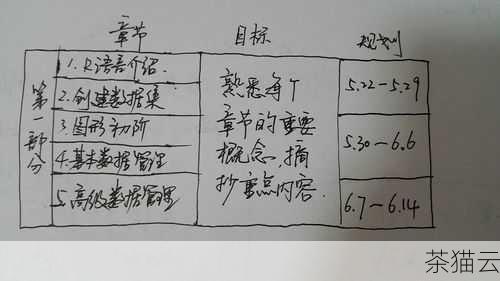 章节 目标 规划
第一部分
1.R语言介绍.
2.创建数据集
3.图形初阶
4.基本数据管理
5.高级数据管理
熟悉每个
章节的重要
概念,摘
抄重点内容.
5.22~5.29
5.30~6.6
6.7~6.14
茶猫云